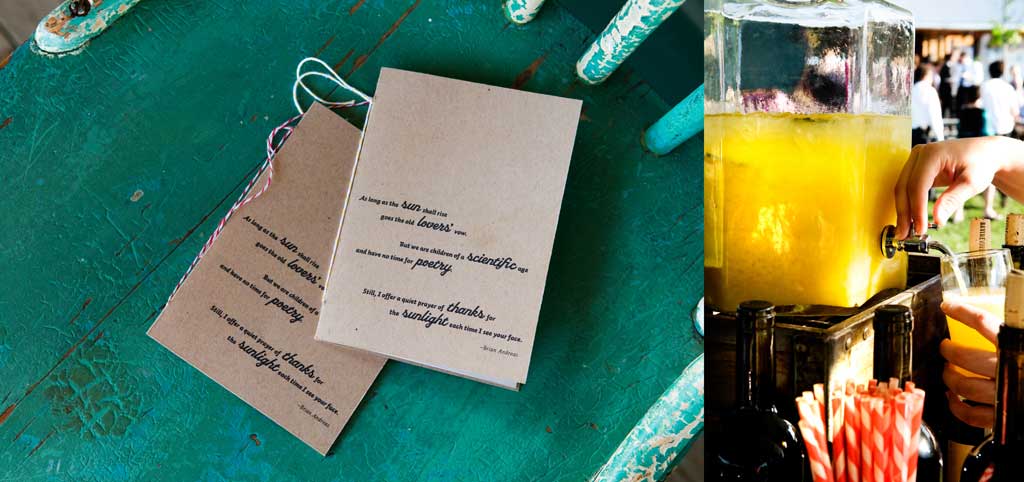 As long as the sun shall rise
goes the old lovers'
But we are children of a
and have no time for poetry
Still, I offer a quiet prayer of thanks for
the sunlight each time I see your face.
-Brian Andreas
As long as the sun shall rise
goes the old lovers' vow.
But we are children of a scientific age
and have no time for poetry.
Still, I offer a quiet prayer of thanks for
the sunlight each time I see your face.
-Brian Andreas